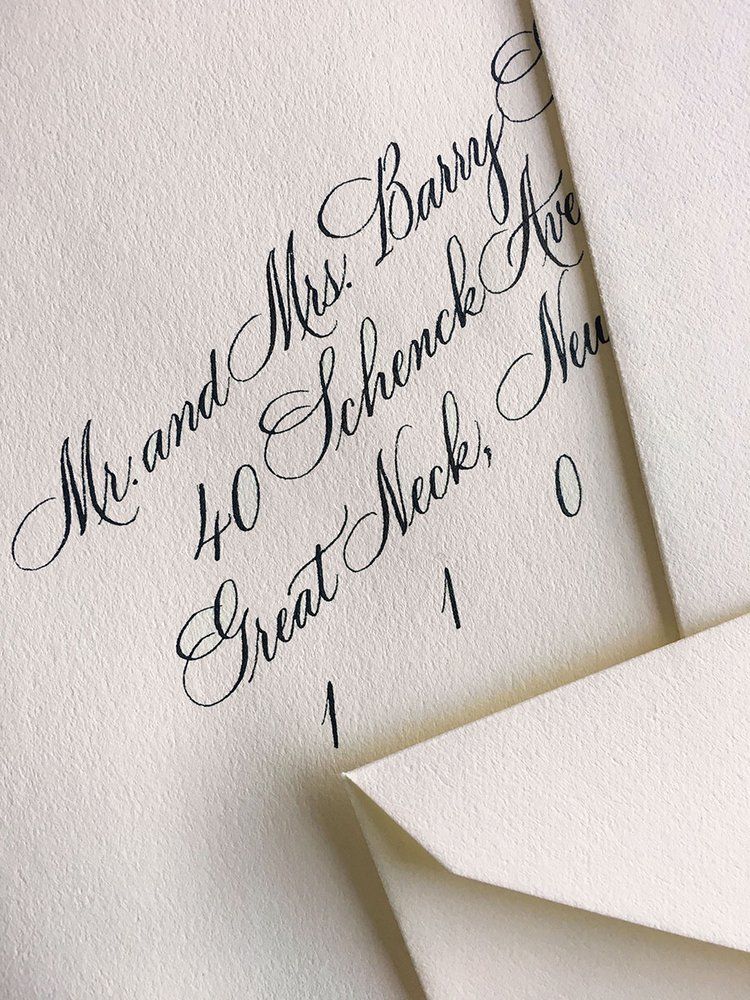 Mr. and Mrs. Barry E
40 Schenck Ave
Great Neck, New
1 1 0